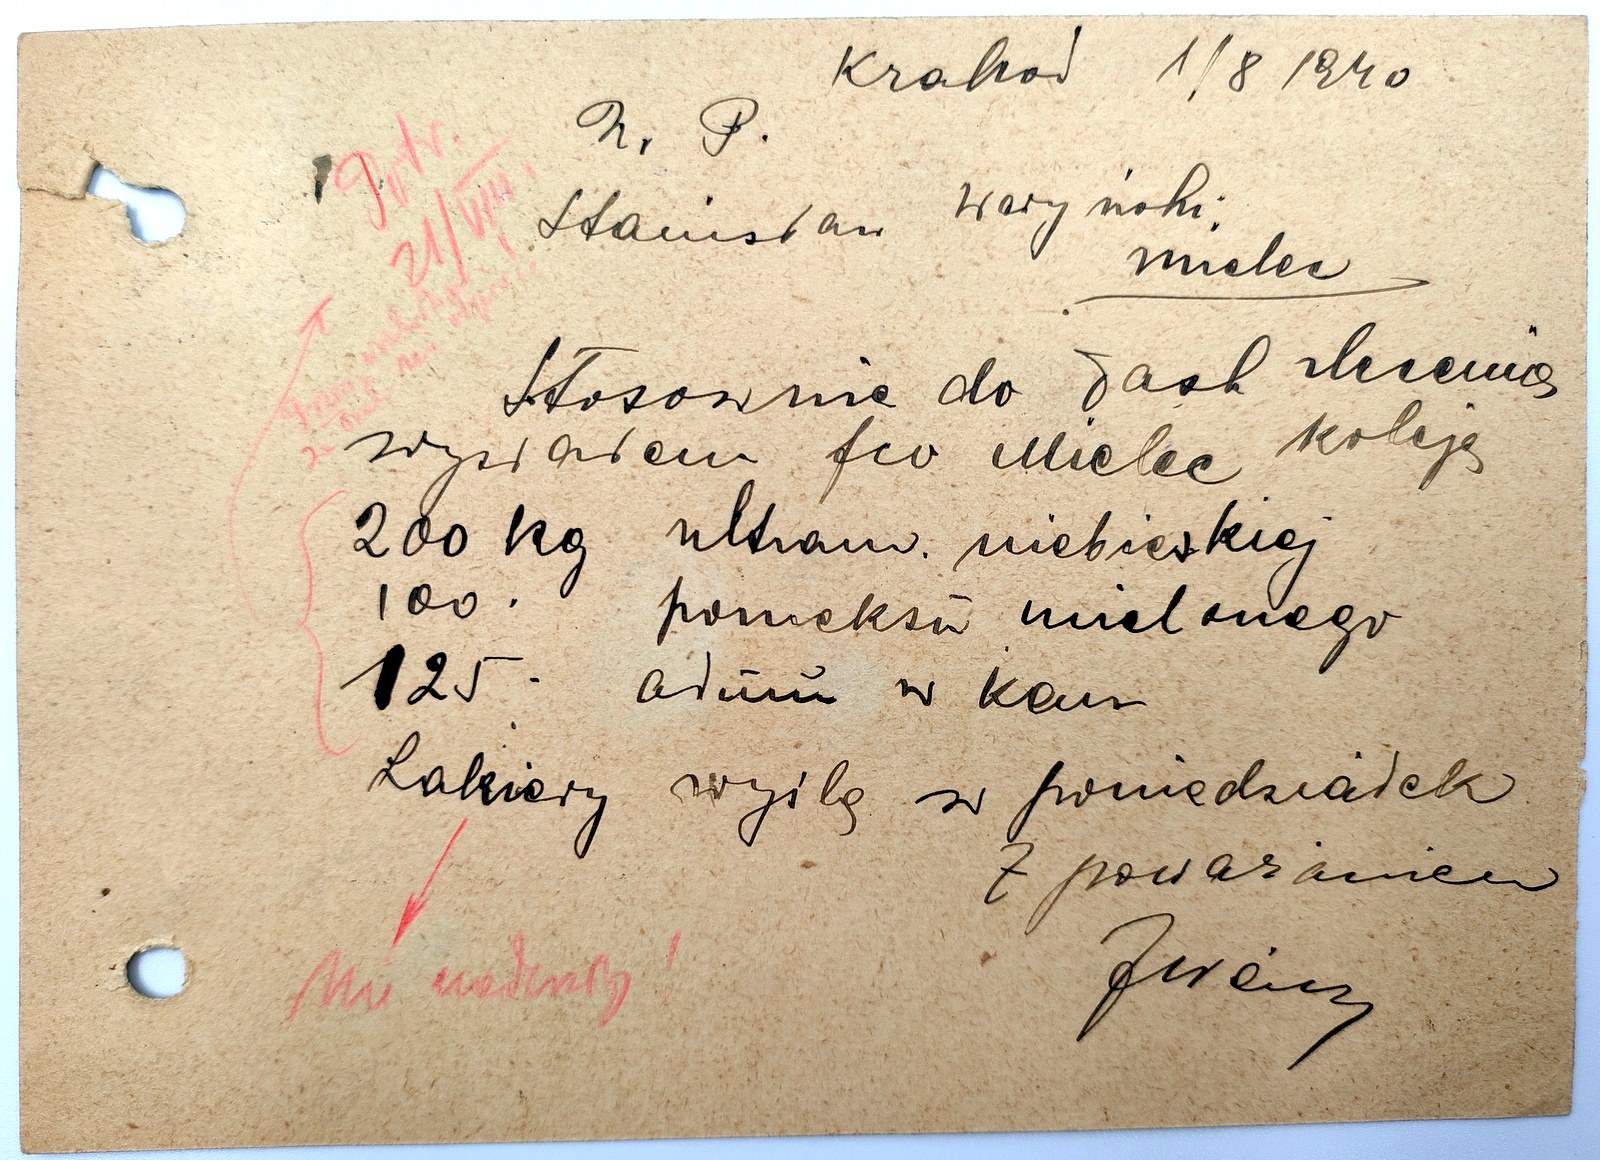 Kraków 1/8 1940
W. P.
Stanisław Waryński
Mielec
Stosownie do Łask zlecenia
wysłałem fco Mielec koleją
200 kg ultram. niebieskiej
100 · pomeksu mielonego
125 · ałunu w kam
Lakiery wyślę w poniedziałek
Z poważaniem
Potw.
21/VIII.
Nie nadeszły!